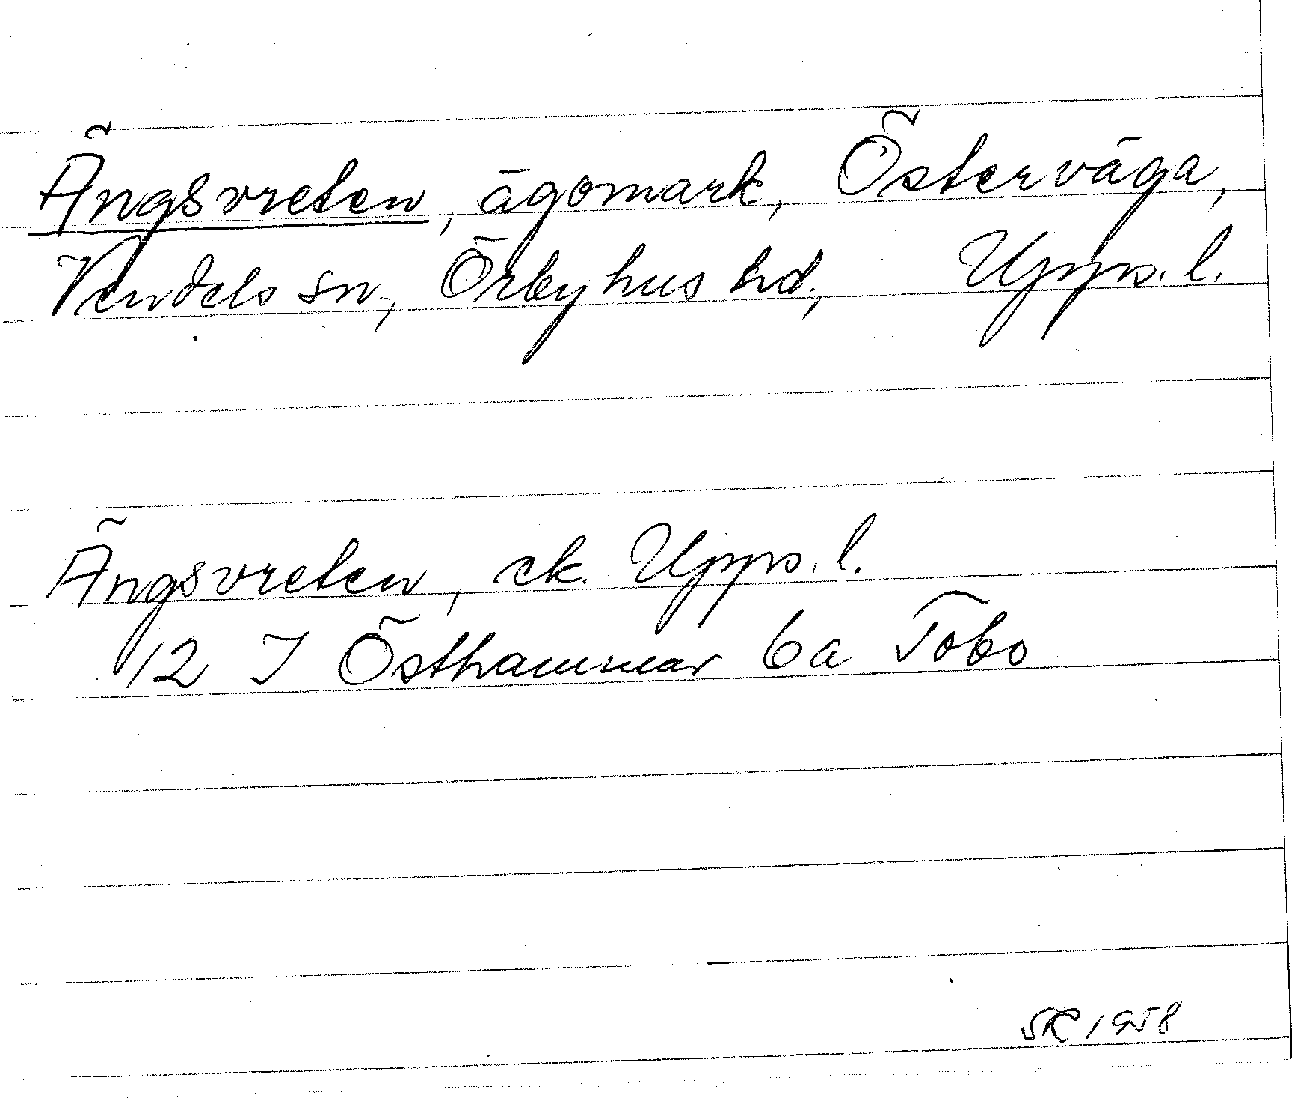 Ängsvreten, ägomark, Österväga,
Vendels sn, Örbyhus hd, Upps. l.
Ängsvreten, ek. Upps. l.
12 I Östhammar 6a Tobo
SR 1958